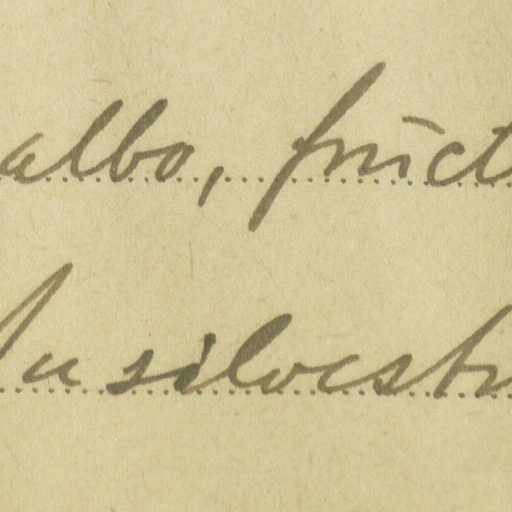 albo, fruct
In silvestr